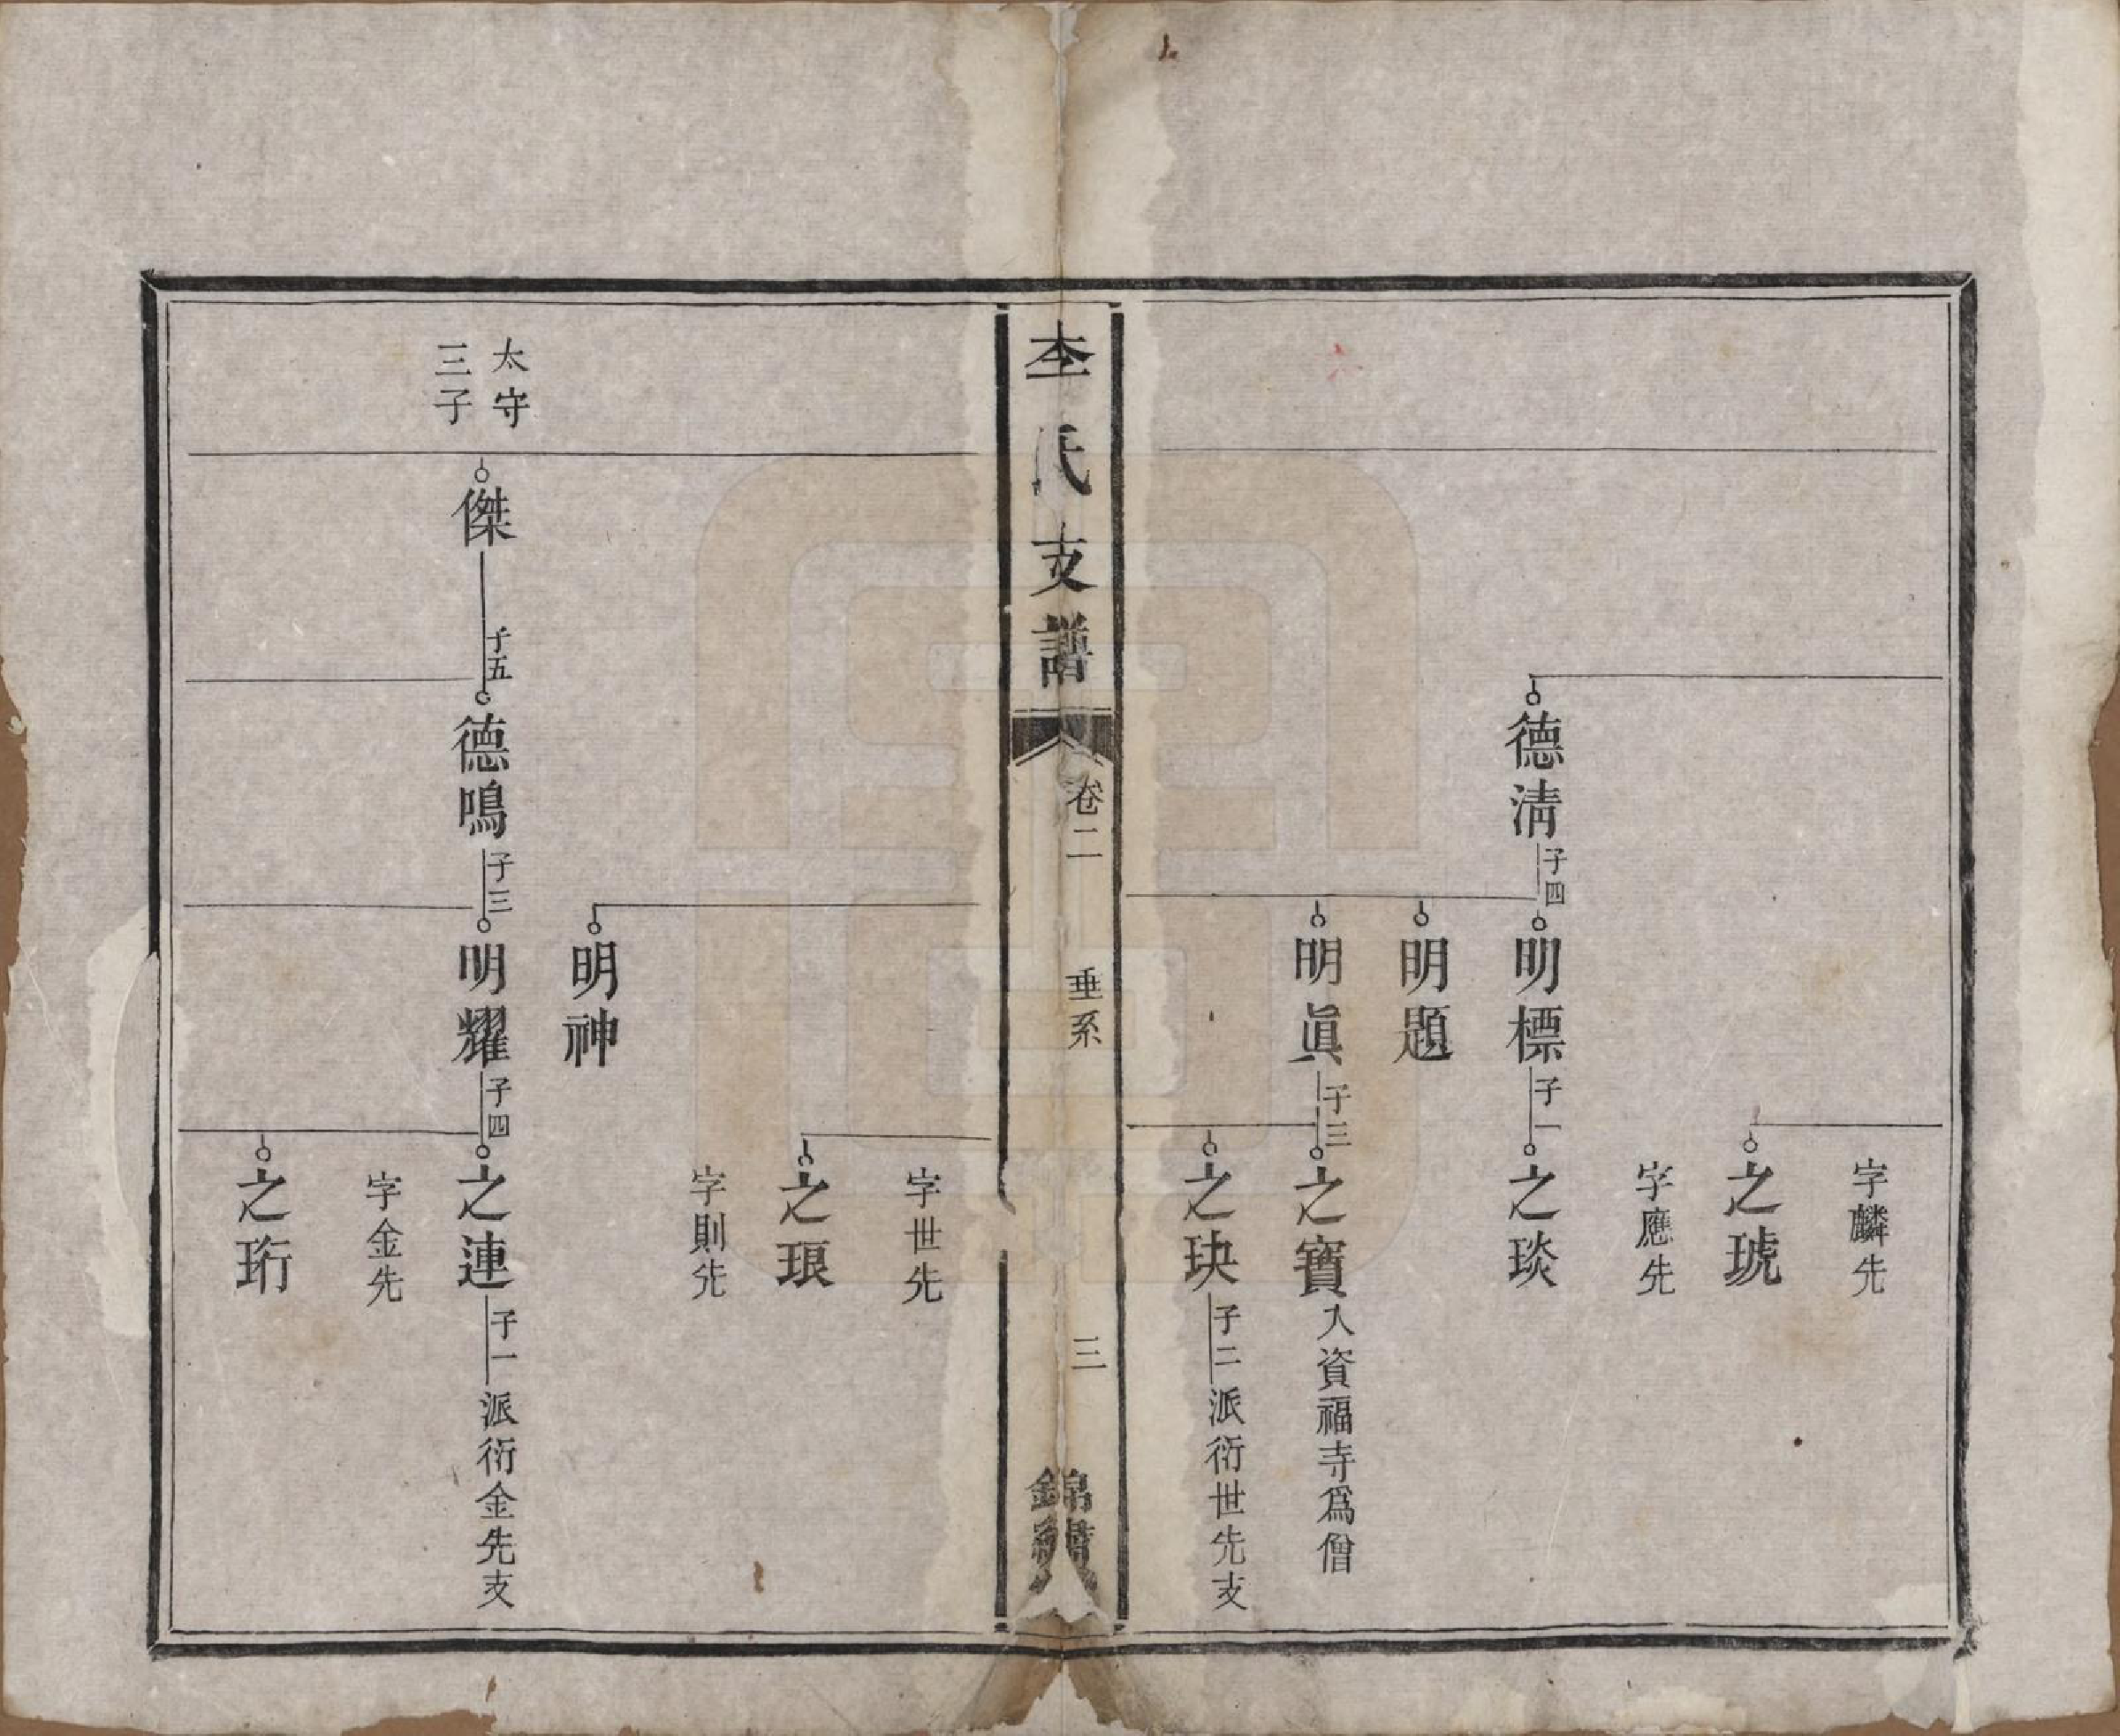 字麟先
之琥
字應先
德淸 子四 明標 子一 之琰
明題
明眞 子三 之寶 入資福寺爲僧
之玦 子二 派衍世先支
李氏支譜 卷二 垂系 三 錦
字世先
之珢
字則先
明神
太守
三子
傑 子五 德鳴 子三 明耀 子四 之連 子一 派衍金先支
字金先
之珩